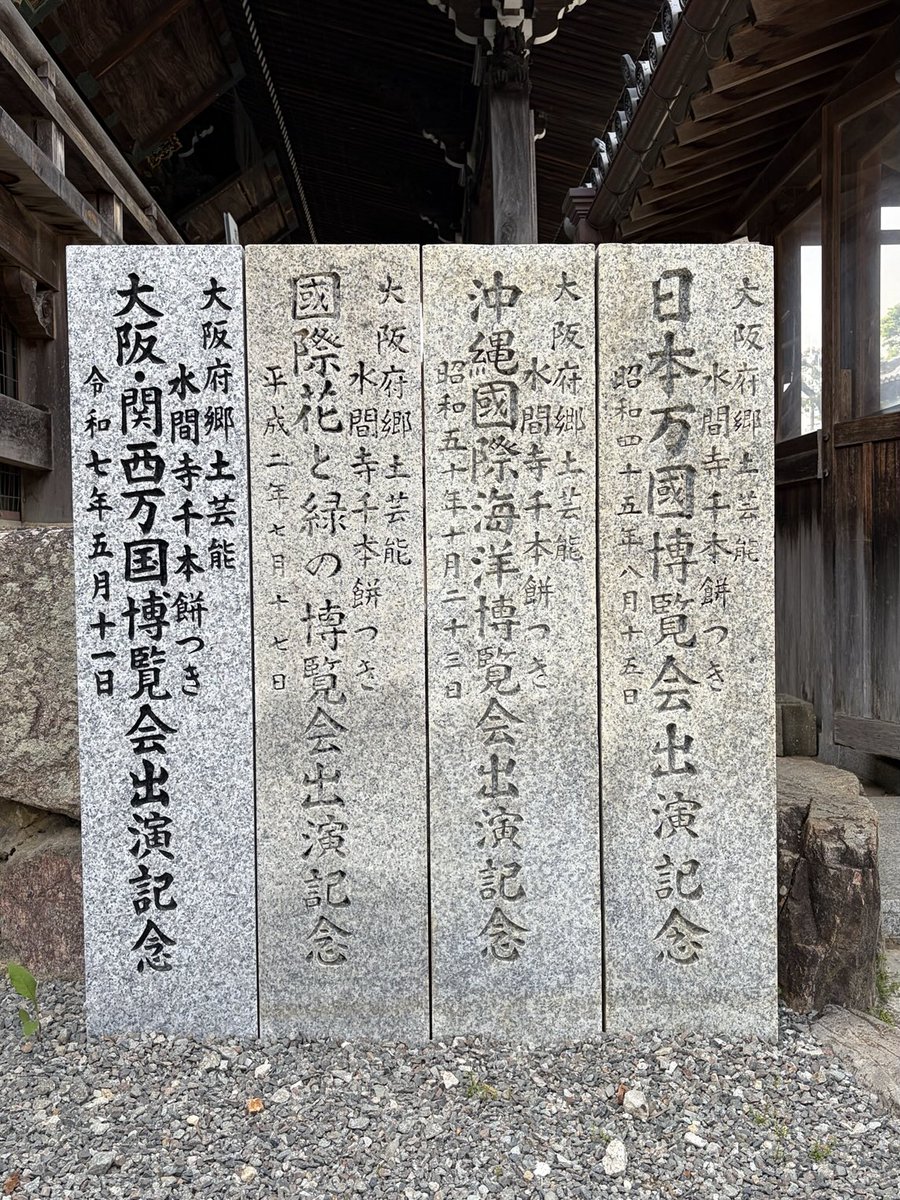 大阪府郷土芸能
水間寺千本餅つき
日本万國博覧会出演記念
昭和四十五年八月十五日
大阪府郷土芸能
水間寺千本餅つき
沖縄國際海洋博覧会出演記念
昭和五十年十月二十三日
大阪府郷土芸能
水間寺千本餅つき
國際花と緑の博覧会出演記念
平成二年七月十七日
大阪府郷土芸能
水間寺千本餅つき
大阪・関西万国博覧会出演記念
令和七年五月十一日